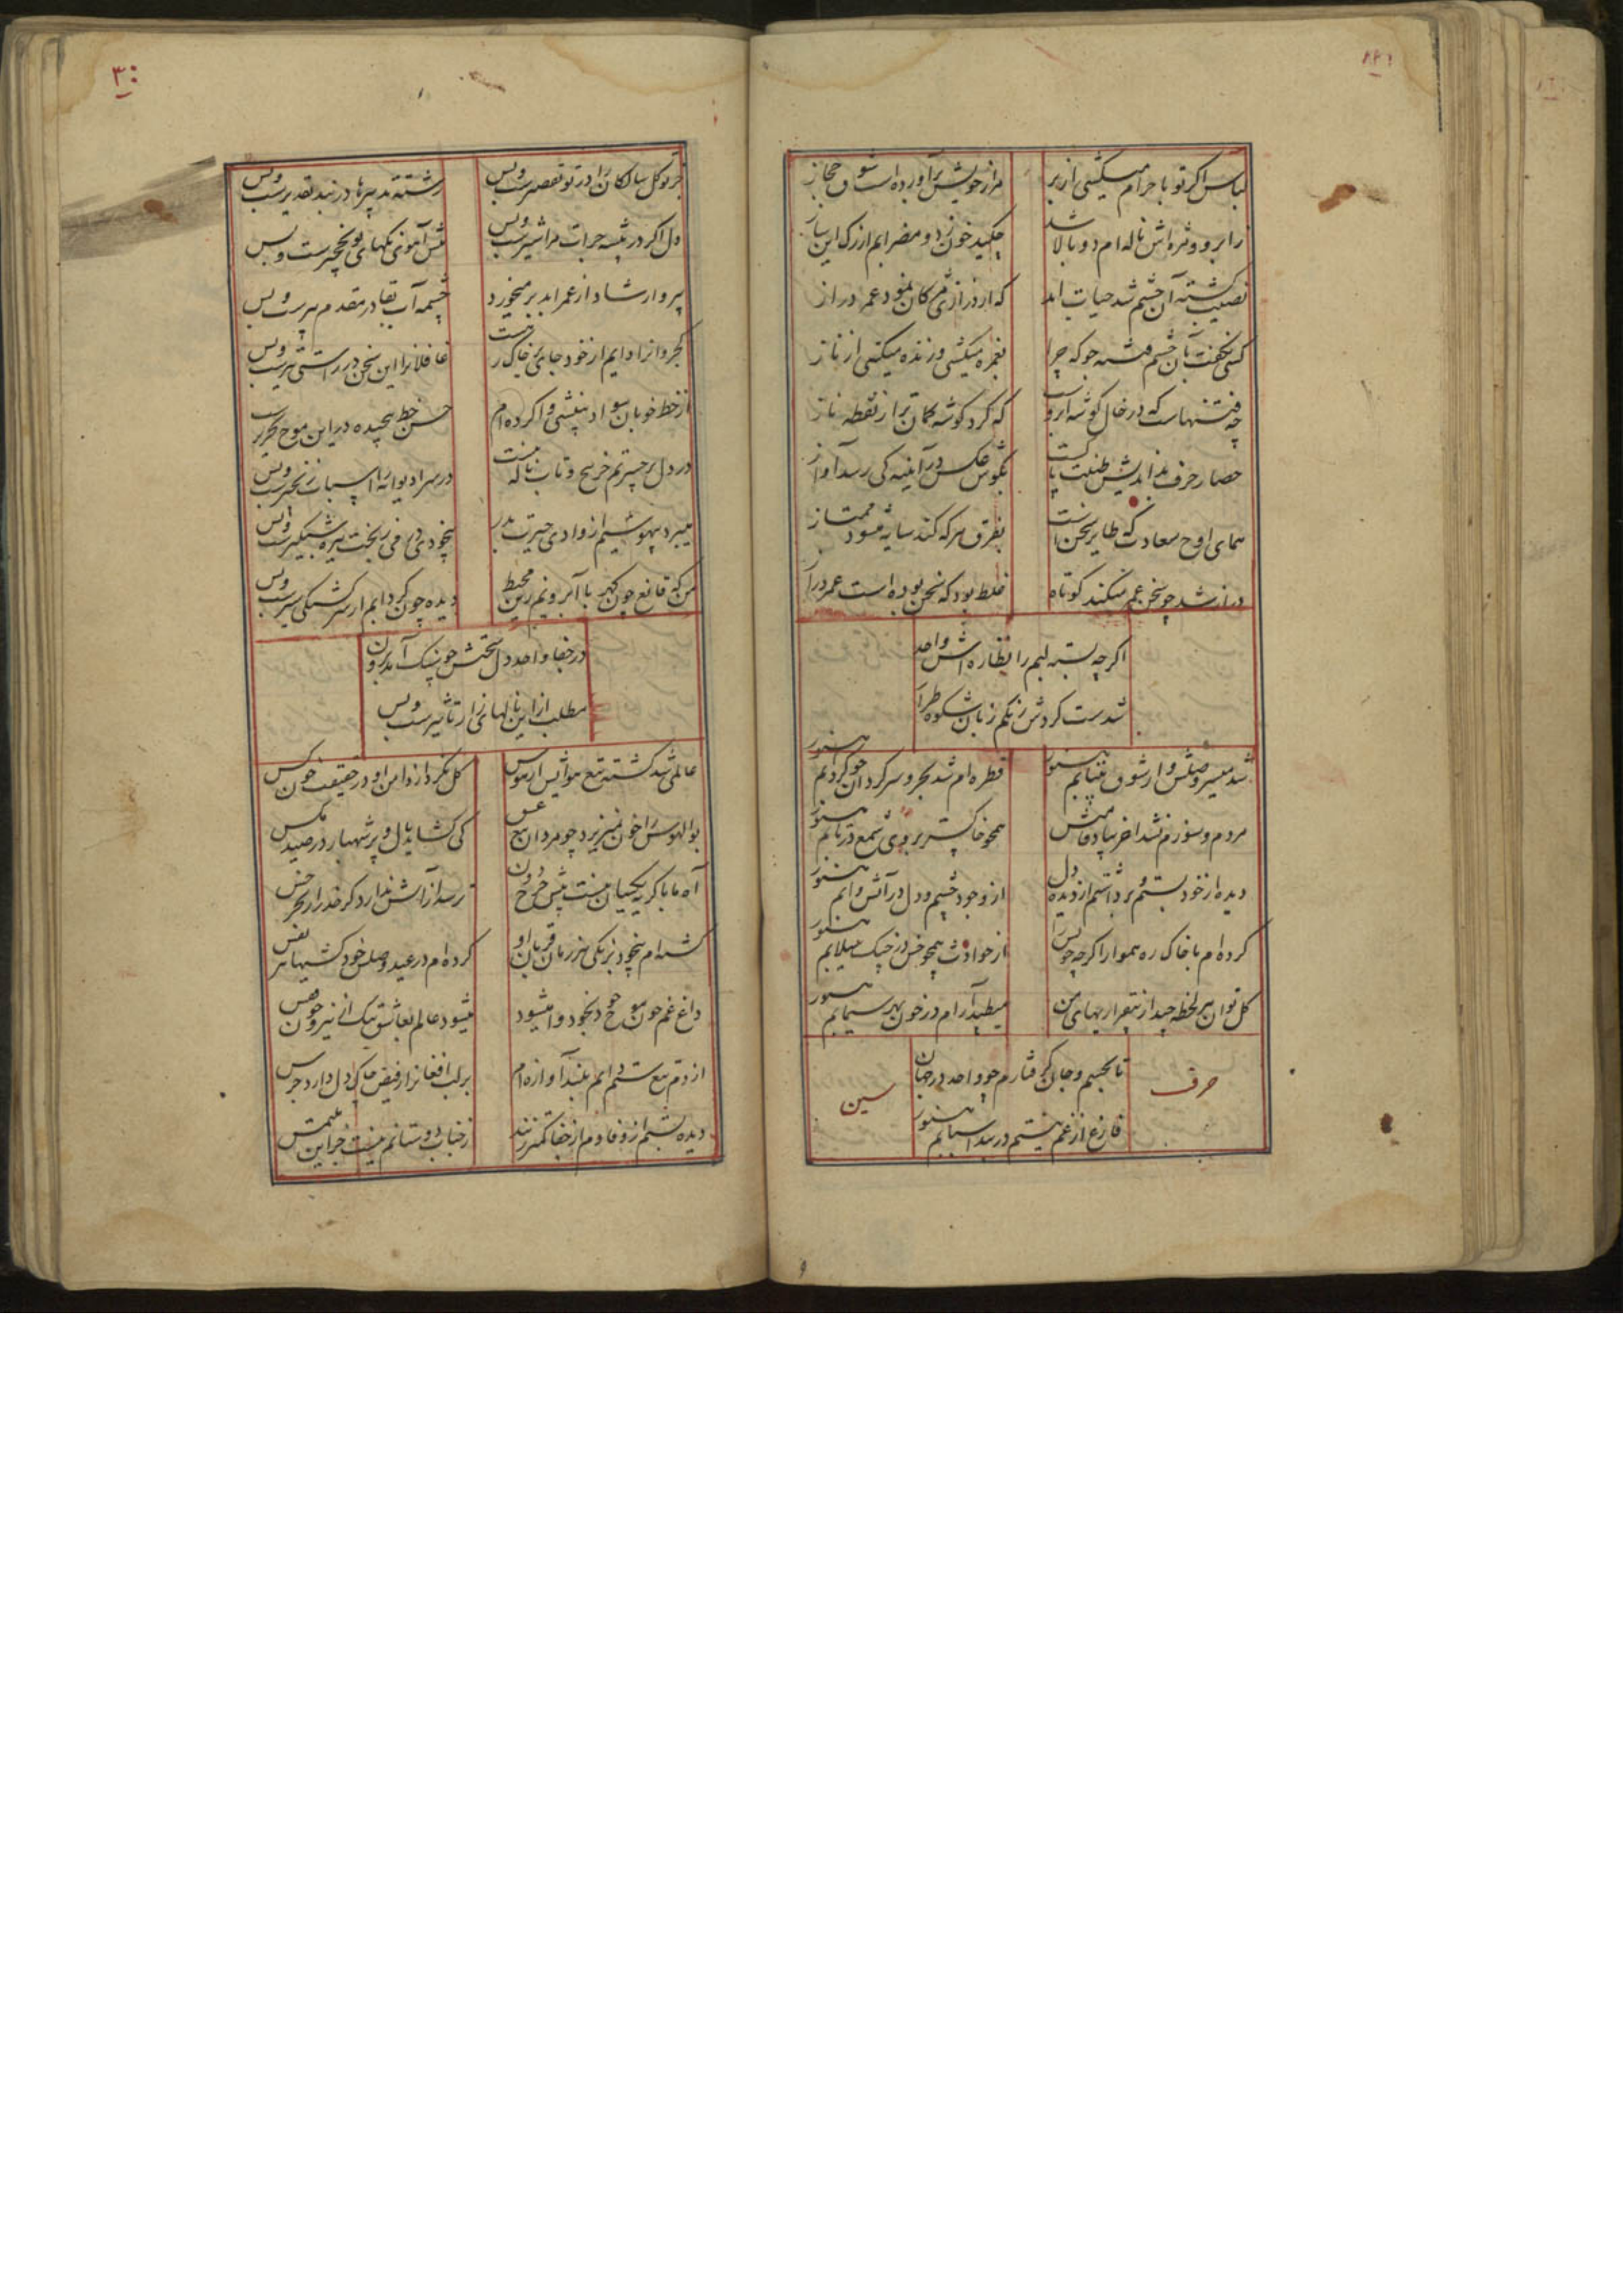 لباس اکر تو باحرام میکشی از بر
مرا ز خویش برآورده است شوق حجاز
ز ابرو و مژه اش ناله ام دو بالا شد
چکید خون ز دو مضرابم از رک این ساز
نصیب کشته آن چشم شد حیات ابد
که از درازی مژکان نمود عمر دراز
کسی نکفت بآن چشم فتنه جو که چرا
بغمزه میکشی و زنده میکنی از ناز
چه فتنهاست که در خال کوشه ابروست
که کرد کوشه کمان تر از نقطه ناز
حصار حرف بداندیش طینت پاکست
بکوش عکس در آینه کی رسد آواز
همای اوج سعادت که طایر سخن است
بفرق هر که کند سایه میشود ممتاز
دراز شد چو سخن عمر میکند کوتاه
غلط بود که سخن بوده است عمر دراز
اکر چه بسته لبم را نظاره اش واحد
شدست کردش رنکم زبان شکوه طراز
شد میسر وصلش و از شوق بیتابم هنوز
قطره ام شد بحر و سرکردان چو کردابم هنوز
مردم و سوزم نشد اخر بپاد قامتش
همچو خاکستر بروی شمع در تابم هنوز
دیده از خود بستم و برداشتم از دیده دل
از وجود چشم و دل در آتش و آبم هنوز
کرده ام با خاک ره هموار اکر چه خویش را
از حوادث همچو خس در چنک سیلابم هنوز
کل توان هر لحظه چید از بیقراریهای من
میطپد آرام در خون بهر سیمابم هنوز
تا بجسم و جان کرفتارم چو واحد در جهان
فارغ از غم نیستم در بند اسبابم هنوز
حرف
سین
جز توکل سالکان را در تو تقصیرست و بس
رشته تدبیرها در بند تقدیرست و بس
دل اکر در بیشه جرات ترا شیرست و بس
پیش آهوی نکهای تو نخچیرست و بس
پیر و ارشاد از عمر ابد بر میخورد
چشمه آب بقا در مقدم پیرست و بس
کجرو آنرا دایم از خود جا بزیر خاک رست
غافلانرا این سخن در راستی تیرست و بس
از خط خوبان سواد بینشی وا کرده ام
حسن خط پیچیده در این موج تحریرست
در دل پر حیرتم جز پیچ و تاب ناله نیست
در سرا دیوانه را اسباب زنجیرست و بس
میبرد بیهوشیم از وادی حیرت بدر
بیخودی در رفتن بخت تیره شبکیرست و بس
من که قانع چون کهر با آبرویم زین محیط
دیده چون کردابم از سرکشتکی سیرست و بس
در جفا واحد دل سختش چو نیک آمد برون
مطلب از این نالهای زار تاثیرست و بس
عالمی شد کشته تیغ هوایش از هوس
کل نکردد از دامن او در حقیقت خون کس
بوالهوس را خون نمیریزد چو مردان تیغ عشق
کی کشاید بال و پر شهباز در صید مکس
آه ما با کریه یکجا نیست پیش چرخ دون
ترسد از آتش ندارد کر خدر از بحر خس
کشته ام بیخود بزنکی هر زمان قربان او
کرده ام در عید وصلش خود کشیها هر نفس
داغ غم چون موج خود بیخود وا میشود
میشود عالم بعاشق تنک از نیرو چون قفس
از دم تیغ ستم دایم بلند آوازه ام
بر لب افغانرا ز فیض چاک دل دارد جرس
دیده بستم از وفا دم از جفا کمتر زنند
از جناب دوستانم نیست جز این ملتمس